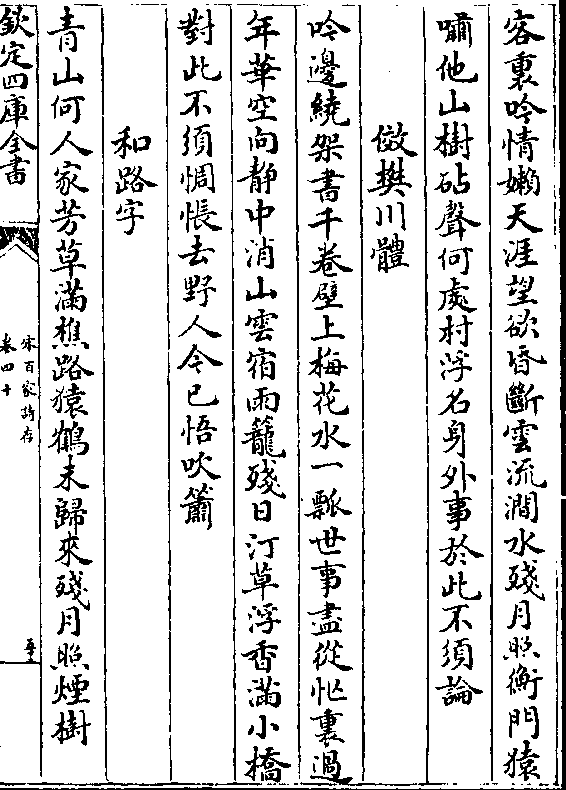 客裏吟情嬾天涯望欲昏斷雲流澗水殘月照衡門猿
嘯他山樹砧聲何處村浮名身外事於此不須論
傚樊川體
吟邊繞架書千卷壁上梅花水一瓢世事盡從忙裏過
年華空向静中消山雲宿雨籠殘日汀草浮香滿小橋
對此不須惆悵去野人今已悟吹簫
和路字
青山何人家芳草滿樵路猿鶴未歸來殘月照煙樹
欽定四庫全書
宋百家詩存
卷四十